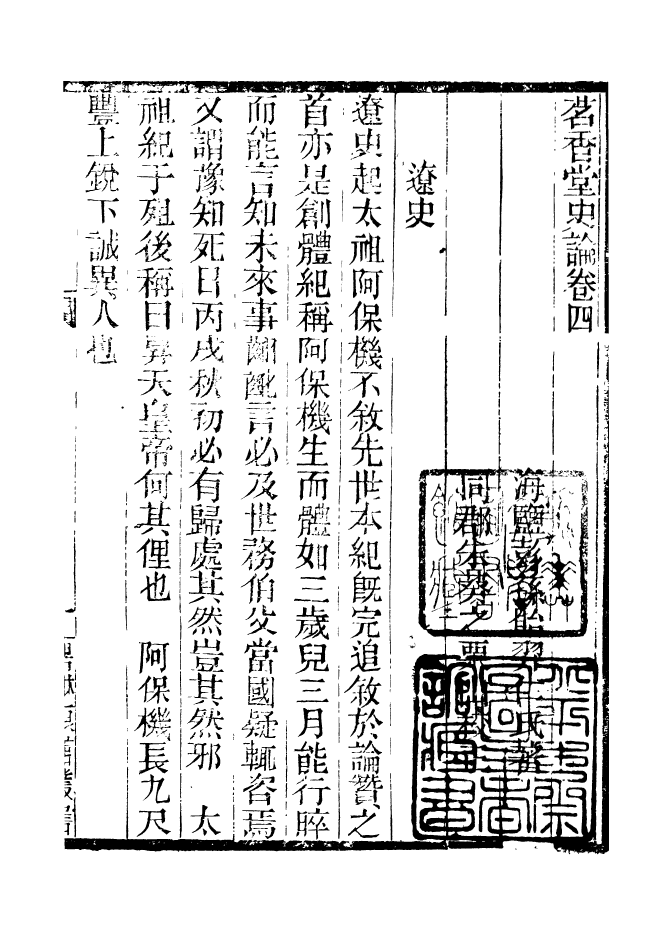 茗香堂史論卷四
海鹽彭孫貽羿仁氏著
同郡朱葵之
遼史
遼史起太祖阿保機不敘先世本紀旣完追敘於論贊之
首亦是創體紀稱阿保機生而體如三歲兒三月能行晬
而能言知未來事齠齔言必及世務伯父當國疑輒咨焉
又謂豫知死日丙戌秋初必有歸處其然豈其然邪 太
祖紀于殂後稱曰昇天皇帝何其俚也 阿保機長九尺
豐上銳下誠異人也